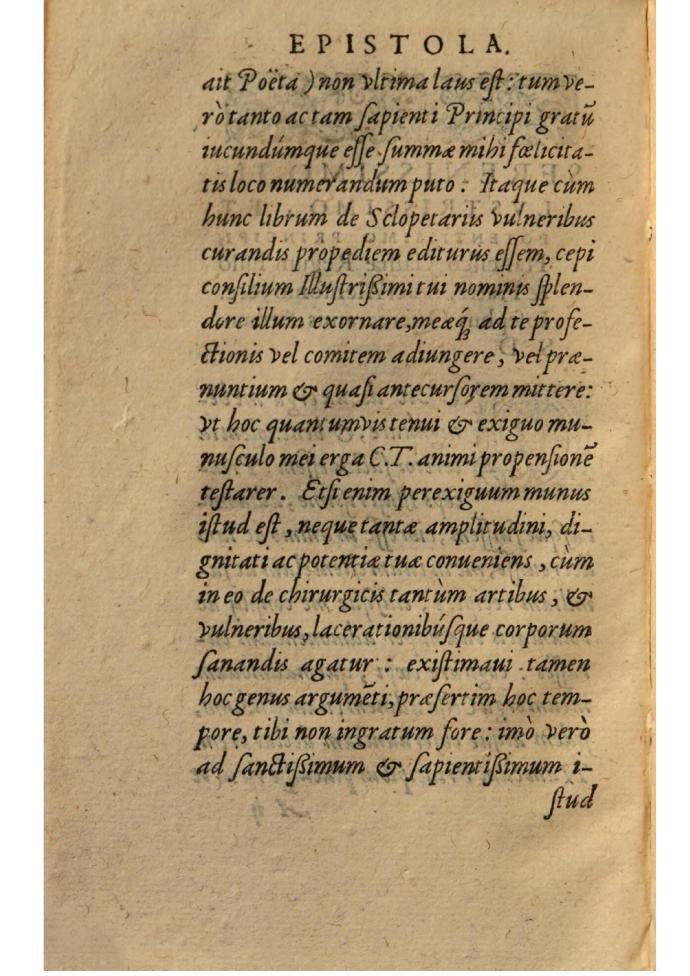 EPISTOLA.
ait Poëta ) non vltima laus eſt : tum ve-
rò tanto ac tam ſapienti Principi gratū
iucundúmque eſſe ſummæ mihi fœlicita-
tis loco numerandum puto : Itaque cùm
hunc librum de Sclopetariis vulneribus
curandis propediem editurus eſſem, cepi
conſilium Illuſtrißimi tui nominis ſplen-
dore illum exornare, meæq́; ad te profe-
ctionis vel comitem adiungere, vel præ-
nuntium & quaſi antecurſorem mittere:
vt hoc quantumvis tenui & exiguo mu-
nuſculo mei erga C.T. animi propenſionē
teſtarer. Etſi enim perexiguum munus
iſtud eſt, neque tantæ amplitudini, di-
gnitati ac potentiæ tuæ conueniens, cùm
in eo de chirurgicis tantùm artibus, &
vulneribus, lacerationibúſque corporum
ſanandis agatur : exiſtimaui tamen
hoc genus argumēti, præſertim hoc tem-
pore, tibi non ingratum fore : imò verò
ad ſanctißimum & ſapientißimum i-
ſtud